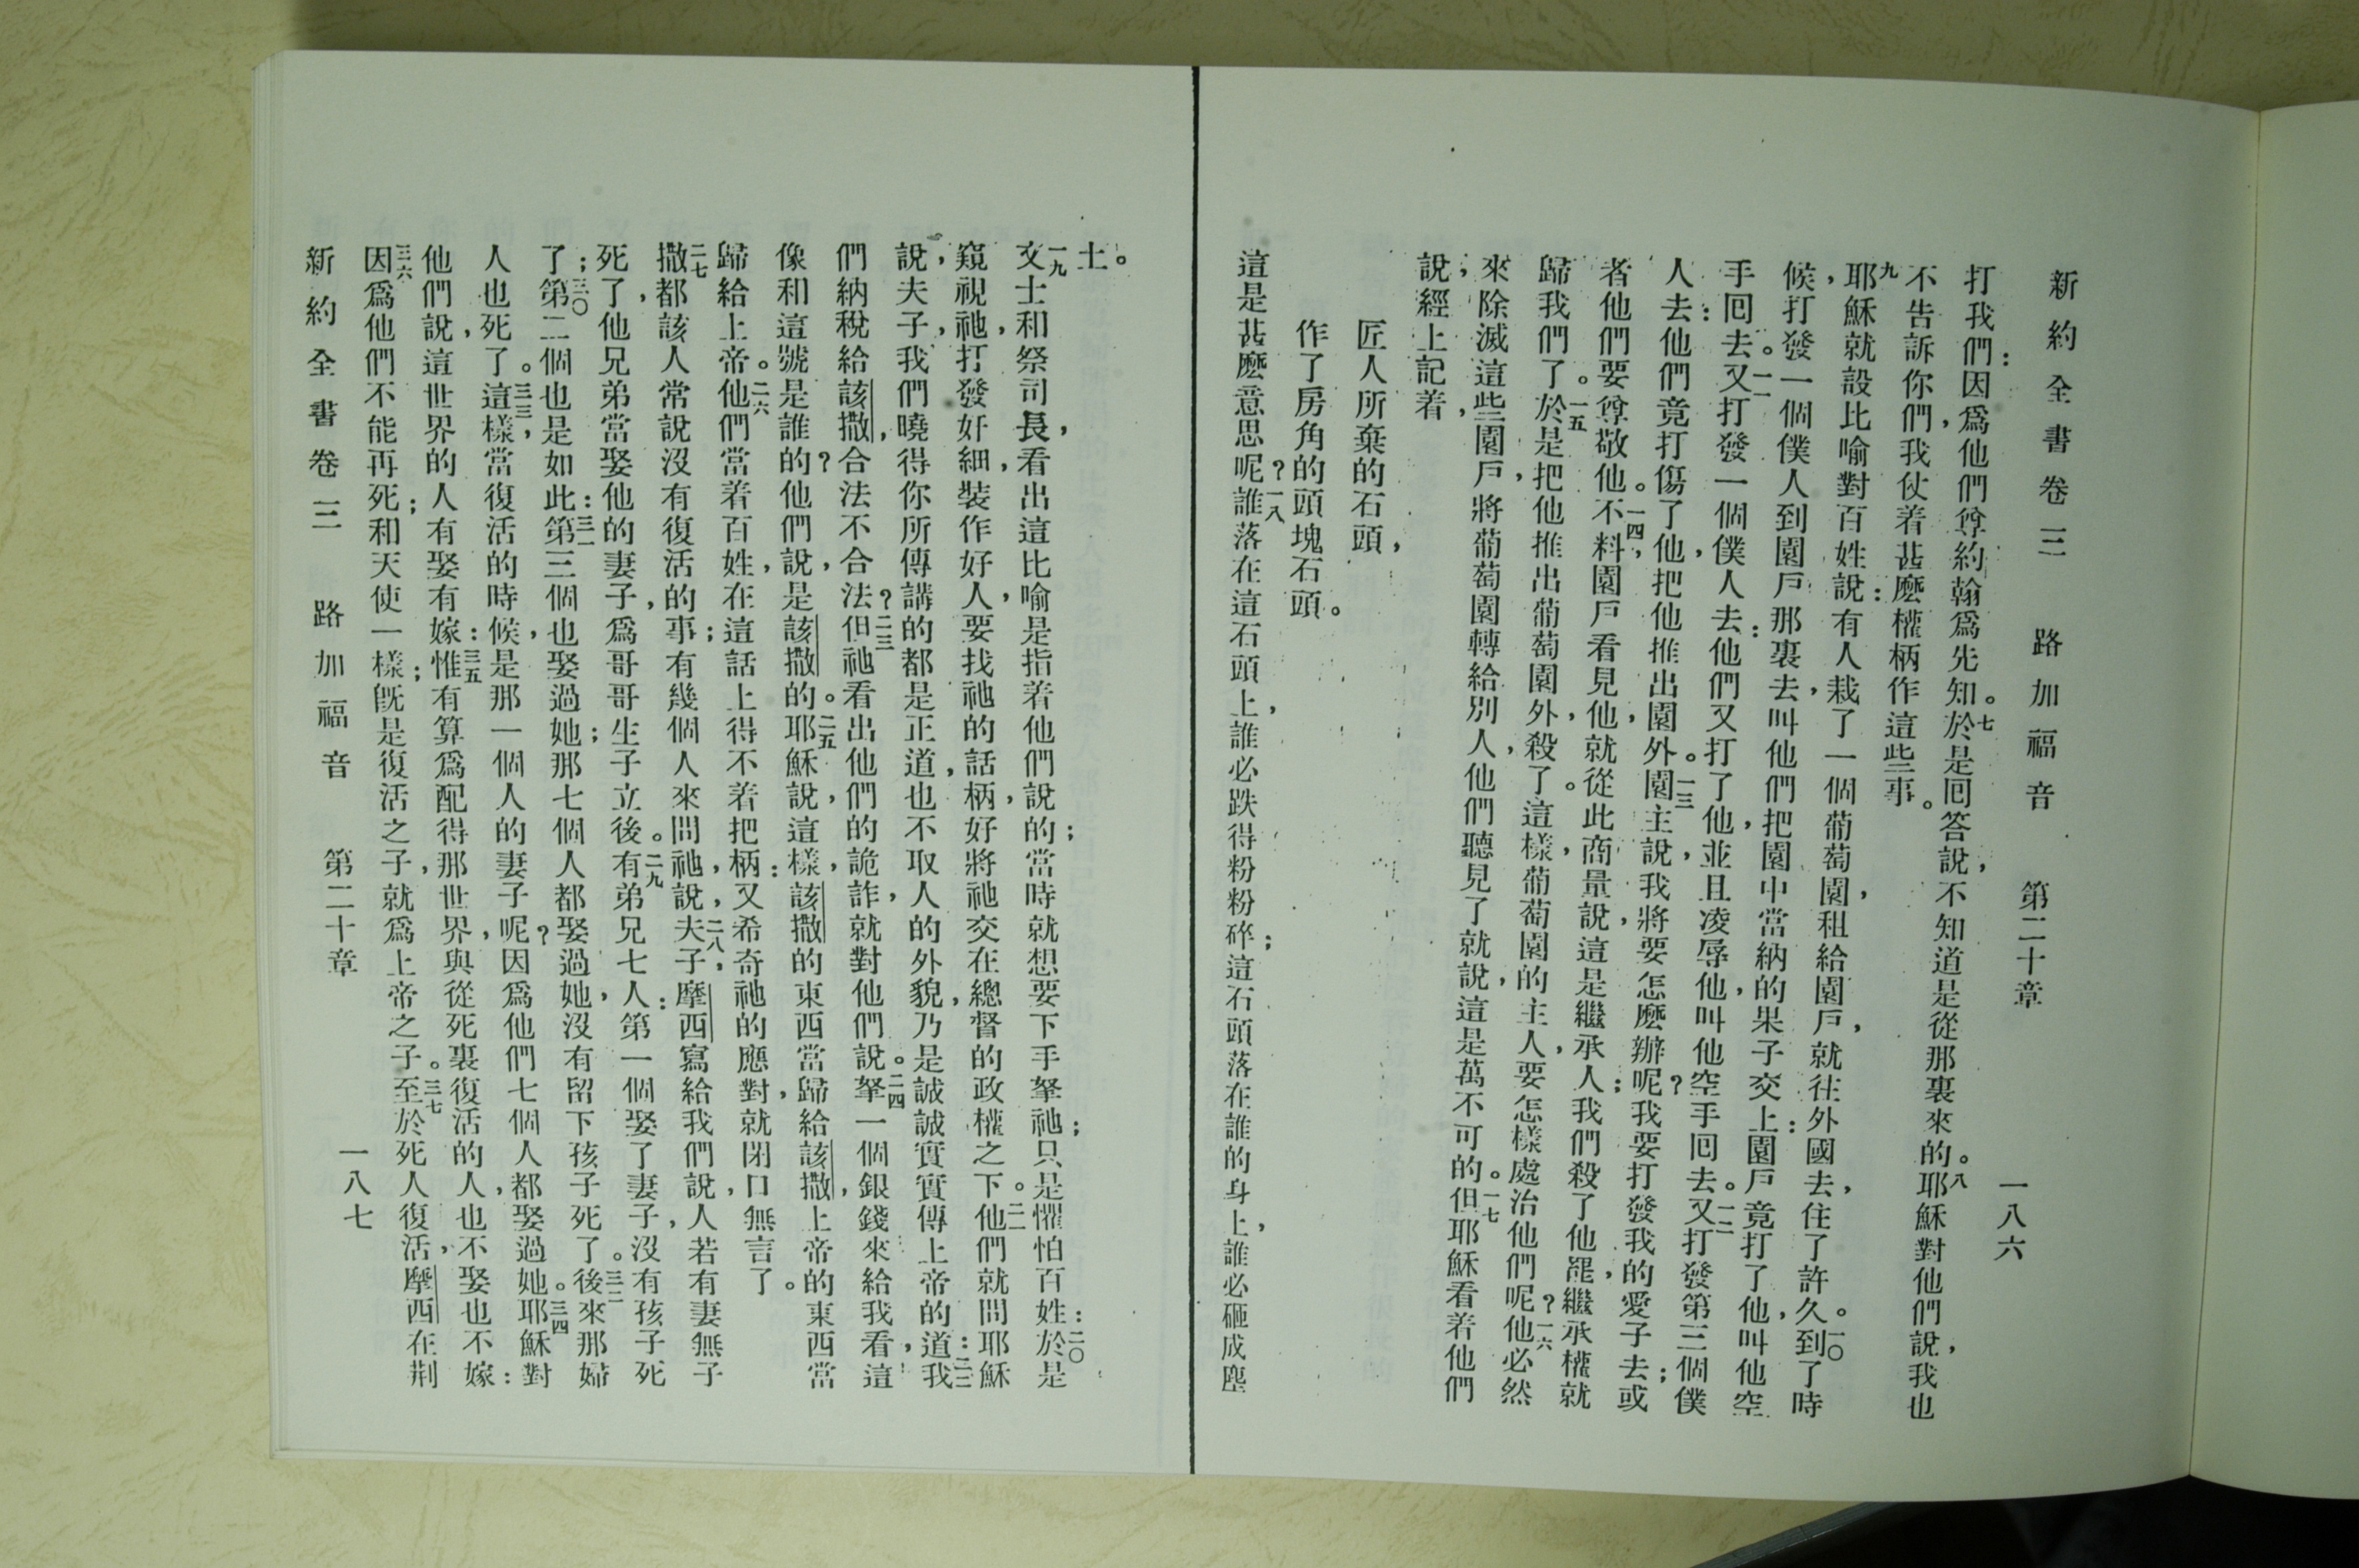 新約全書卷三 路加福音 第二十章 一八六
打我們：因爲他們尊約翰爲先知。七於是囘答說，不知道是從那裏來的。八耶穌對他們說，我也
不告訴你們，我仗着甚麼權柄作這些事。
九耶穌就設比喻對百姓說：有人栽了一個葡萄園，租給園戶，就往外國去，住了許久。一〇到了時
候，打發一個僕人到園戶那裏去，叫他們把園中當納的果子交上：園戶竟打了他，叫他空
手囘去。一一又打發一個僕人去：他們又打了他，並且凌辱他，叫他空手囘去。一二又打發第三個僕
人去：他們竟打傷了他，把他推出園外。一三園主說，我將要怎麼辦呢？我要打發我的愛子去；或
者他們要尊敬他。一四不料，園戶看見他，就從此商量說，這是繼承人；我們殺了他罷，繼承權就
歸我們了。一五於是把他推出葡萄園外，殺了。這樣，葡萄園的主人，要怎樣處治他們呢？一六他必然
來除滅這些園戶，將葡萄園轉給別人，他們聽見了就說，這是萬不可的。一七但耶穌看着他們
說，經上記着，
匠人所棄的石頭，
作了房角的頭塊石頭。
這是甚麼意思呢？一八誰落在這石頭上，誰必跌得粉粉碎；這石頭落在誰的身上，誰必砸成塵
土。
一九文士和祭司長，看出這比喻是指着他們說的；當時就想要下手拏祂；只是懼怕百姓：二〇於是
窺視祂，打發奸細，裝作好人，要找祂的話柄，好將祂交在總督的政權之下。二一他們就問耶穌
說，夫子，我們曉得你所傳講的都是正道，也不取人的外貌，乃是誠誠實實傳上帝的道：二二我
們納稅給該撒，合法不合法？二三但祂看出他們的詭詐，就對他們說。二四拏一個銀錢來給我看，這
像和這號是誰的？他們說，是該撒的。二五耶穌說，這樣，該撒的東西當歸給該撒，上帝的東西當
歸給上帝。二六他們當着百姓，在這話上得不着把柄：又希奇祂的應對，就閉口無言了。
二七撒都該人常說沒有復活的事；有幾個人來問祂，說，二八夫子，摩西寫給我們說，人若有妻無子
死了，他兄弟當娶他的妻子，爲哥哥生子立後。二九有弟兄七人：第一個娶了妻子，沒有孩子死
了；三〇第二個也是如此：三一第三個也娶過她；那七個人都娶過她，沒有留下孩子死了。三二後來那婦
人也死了。三三這樣，當復活的時候，是那一個人的妻子呢？因爲他們七個人，都娶過她。三四耶穌對
他們說，這世界的人有娶有嫁：三五惟有算爲配得那世界，與從死裏復活的人，也不娶也不嫁：
三六因爲他們不能再死；和天使一樣；旣是復活之子，就爲上帝之子。三七至於死人復活，摩西在荆
新約全書卷三 路加福音 第二十章 一八七